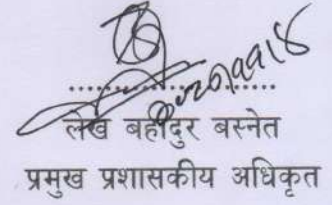 लेख बहादुर बस्नेत
प्रमुख प्रशासकीय अधिकृत